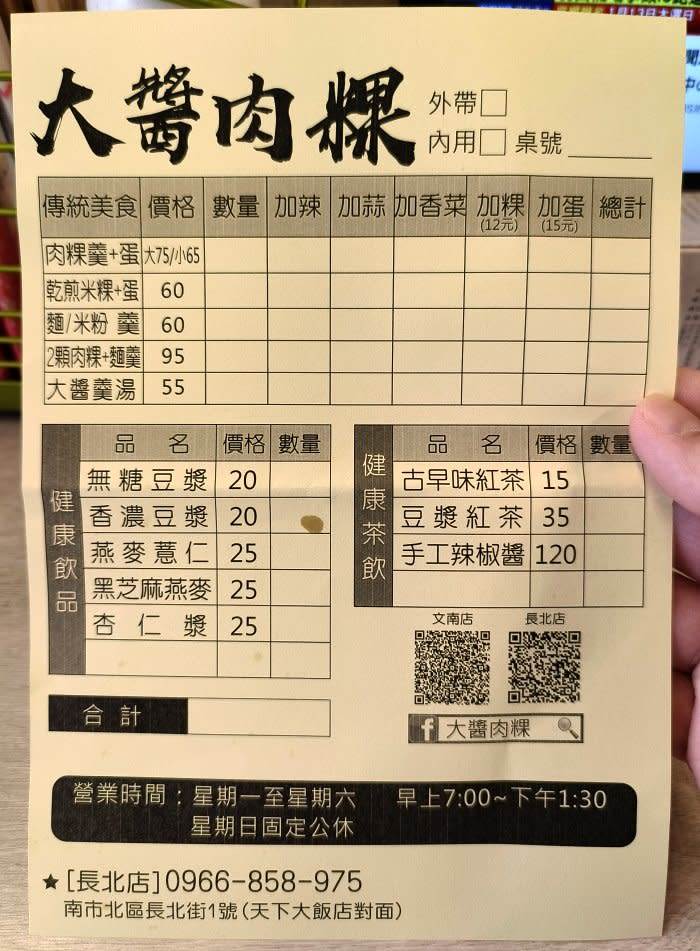 大醬肉粿
外帶□
內用□ 桌號
傳統美食 價格 數量 加辣 加蒜 加香菜 加粿(12元) 加蛋(15元) 總計
肉粿羹+蛋 大75/小65
乾煎米粿+蛋 60
麵/米粉 羹 60
2顆肉粿+麵羹 95
大醬羹湯 55
健康飲品
品名 價格 數量
無糖豆漿 20
香濃豆漿 20
燕麥薏仁 25
黑芝麻燕麥 25
杏仁漿 25
健康茶飲
品名 價格 數量
古早味紅茶 15
豆漿紅茶 35
手工辣椒醬 120
文南店 長北店
f 大醬肉粿
合計
營業時間：星期一至星期六 早上7:00~下午1:30
星期日固定公休
★[長北店]0966-858-975
南市北區長北街1號(天下大飯店對面)